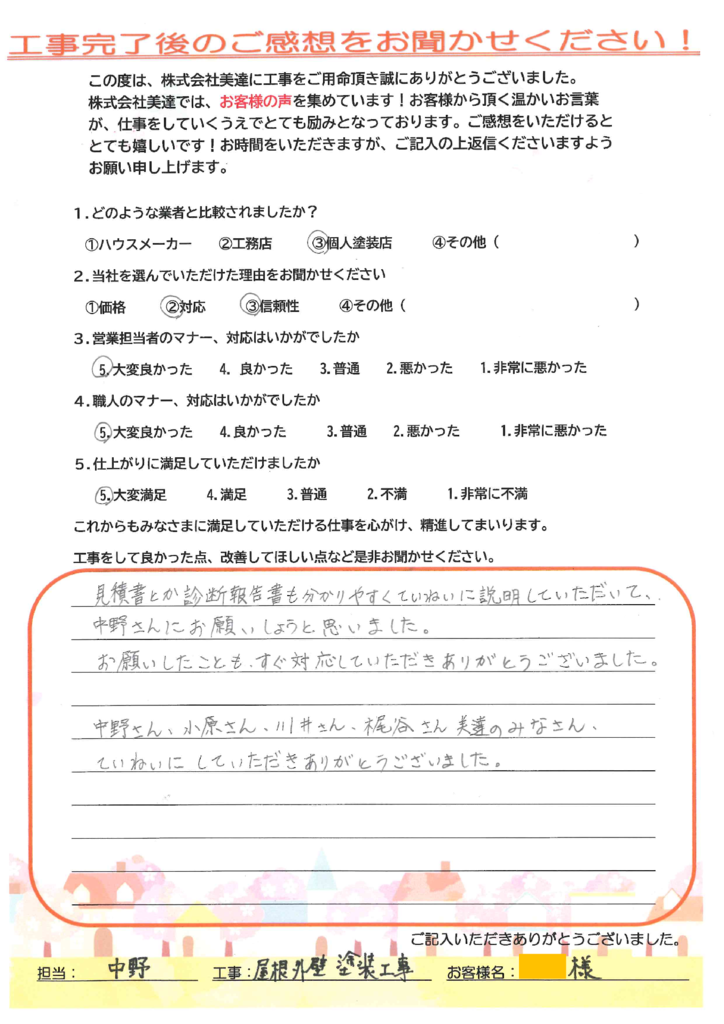 工事完了後のご感想をお聞かせください！
この度は、株式会社美達に工事をご用命頂き誠にありがとうございました。
株式会社美達では、お客様の声を集めています！お客様から頂く温かいお言葉
が、仕事をしていくうえでとても励みとなっております。ご感想をいただけると
とても嬉しいです！お時間をいただきますが、ご記入の上返信くださいますよう
お願い申し上げます。
1.どのような業者と比較されましたか？
①ハウスメーカー ②工務店 ③個人塗装店 ④その他（ ）
2.当社を選んでいただけた理由をお聞かせください
①価格 ②対応 ③信頼性 ④その他（ ）
3.営業担当者のマナー、対応はいかがでしたか
5.大変良かった 4.良かった 3.普通 2.悪かった 1.非常に悪かった
4.職人のマナー、対応はいかがでしたか
5.大変良かった 4.良かった 3.普通 2.悪かった 1.非常に悪かった
5.仕上がりに満足していただけましたか
5.大変満足 4.満足 3.普通 2.不満 1.非常に不満
これからもみなさまに満足していただける仕事を心がけ、精進してまいります。
工事をして良かった点、改善してほしい点など是非お聞かせください。
見積書とか診断報告書も分かりやすくていねいに説明していただいて、
中野さんにお願いしようと思いました。
お願いしたことも、すぐ対応していただきありがとうございました。
中野さん、小原さん、川井さん、梶谷さん美達のみなさん、
ていねいにしていただきありがとうございました。
ご記入いただきありがとうございました。
担当： 中野 工事：屋根外壁塗装工事 お客様名： 様